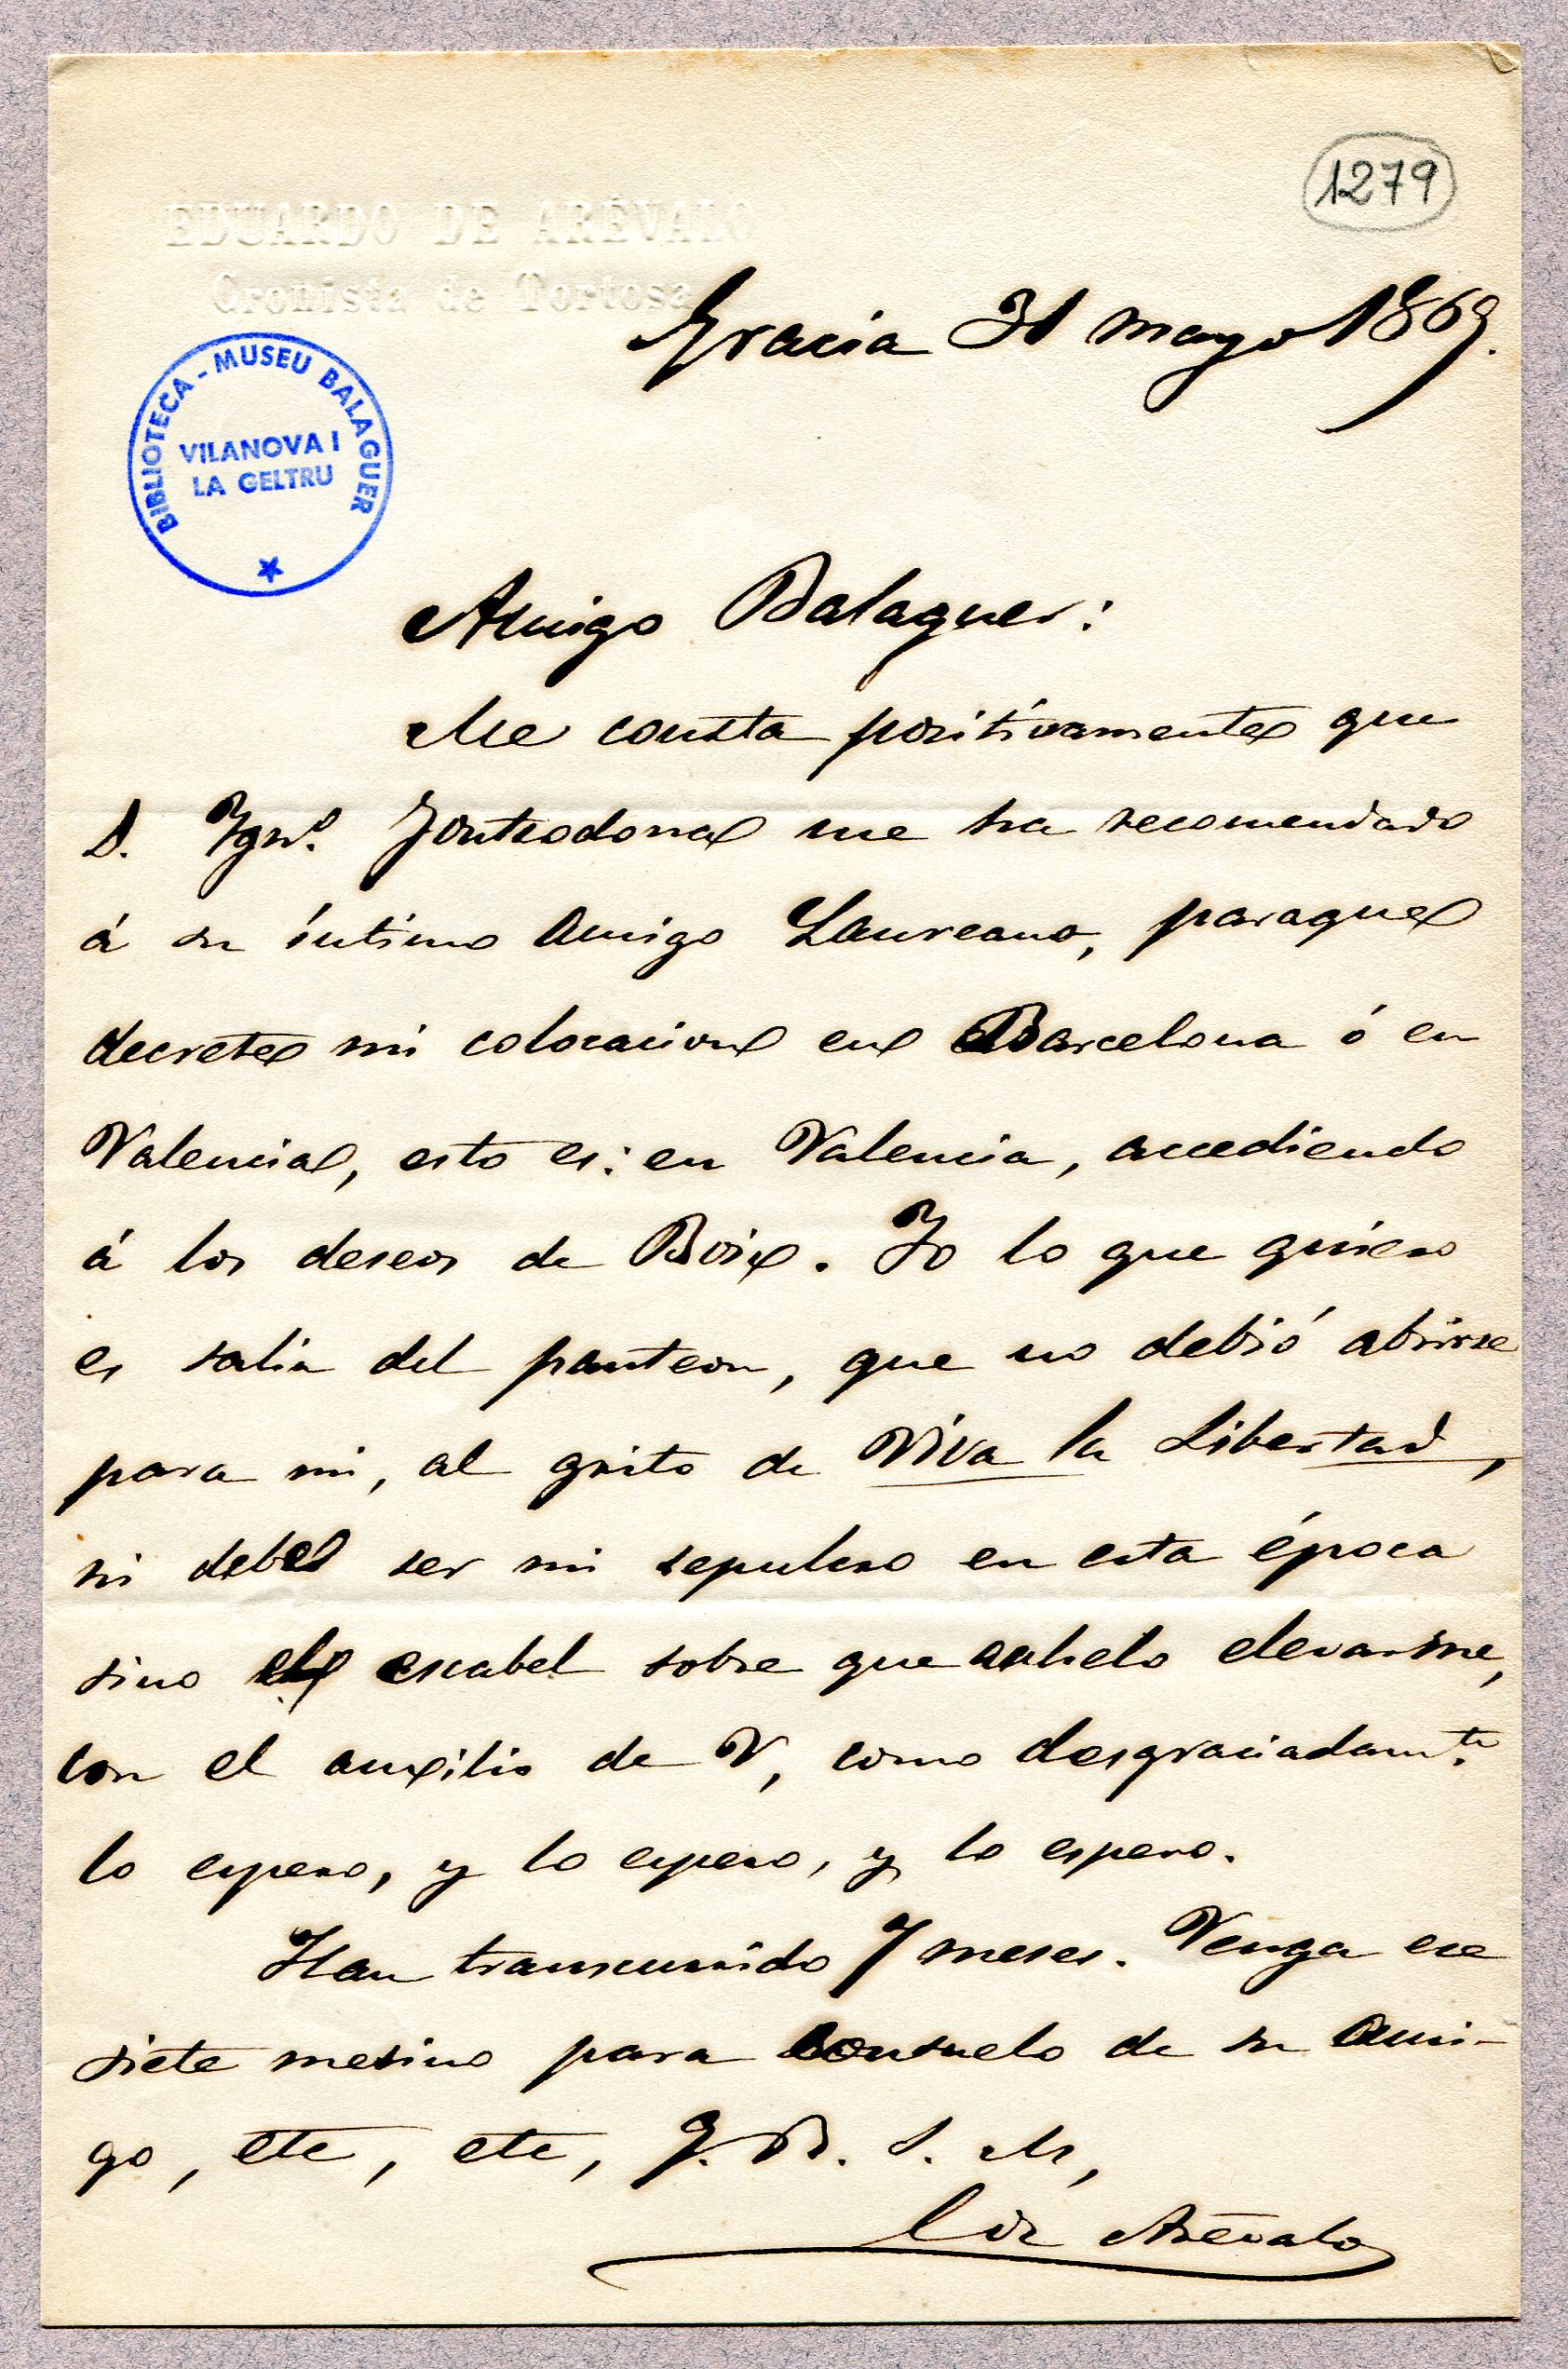 1279
EDUARDO DE ARÉVALO
Cronista de Tortosa
Gracia 31 mayo 1869.
BIBLIOTECA - MUSEU BALAGUER
VILANOVA I
LA GELTRU
Amigo Balaguer:
Me consta positivamente que
D. Ign.º Fontrodona me ha recomendado
á su íntimo amigo Laureano, paraque
decrete mi colocacion en Barcelona ó en
Valencia, esto es: en Valencia, accediendo
á los deseos de Boix. Yo lo que quiero
es salir del panteon, que no debió abrirse
para mi, al grito de Viva la Libertad,
ni debe ser mi sepulcro en esta época
sino el escabel sobre que anhelo elevarme,
con el auxilio de V, como desgraciadam.te
lo espero, y lo espero, y lo espero.
Han transcurrido 7 meses. Venga ese
siete mesino para consuelo de su ami-
go, etc, etc, Q. B. S. M,
Arévalo